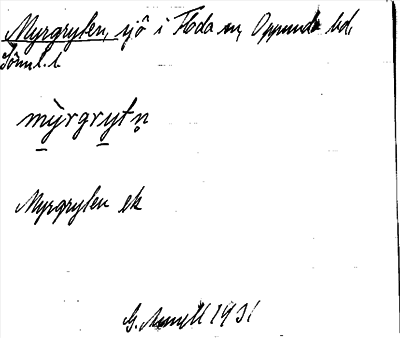 Myrgryten, sjö i Floda sn, Oppunda hd,
Söml. l.
mỳrgrytn̥
Myrgryten ek
G. Arnell 1931